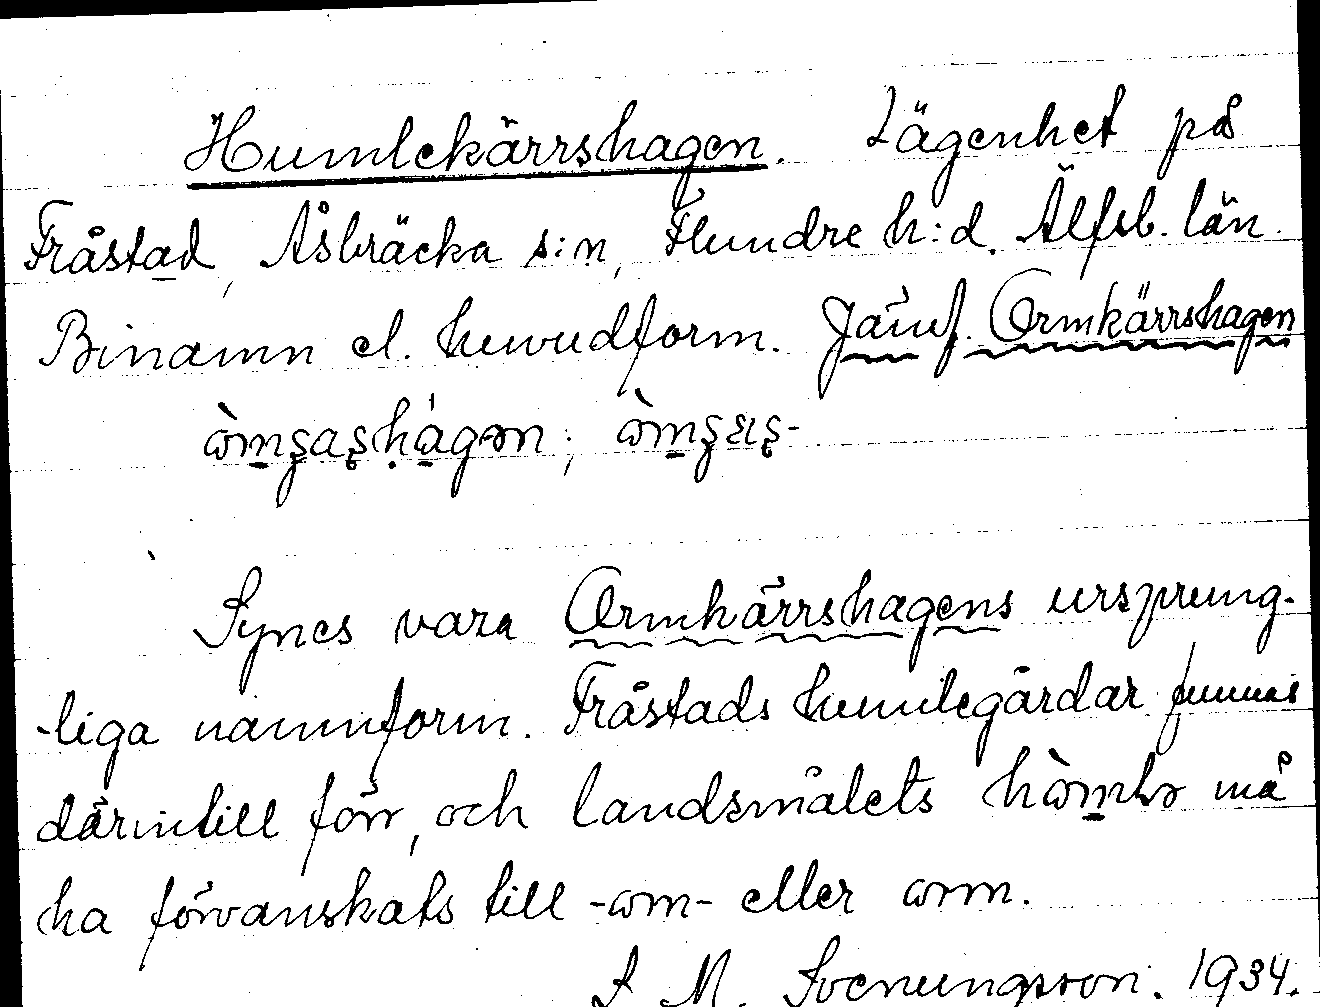 Humlekärrshagen. Lägenhet på
Fråstad, Åsbräcka s:n, Flundre h:d. Älfsb. län.
Binamn el. huvudform. Jämf. Ormkärrshagen
Synes vara Ormkärrshagens ursprung-
-liga namnform. Fråstads humlegårdar funnos
därintill förr, och landsmålets må
ha förvanskats till -om- eller orm.
S. M. Svenungsson. 1934.